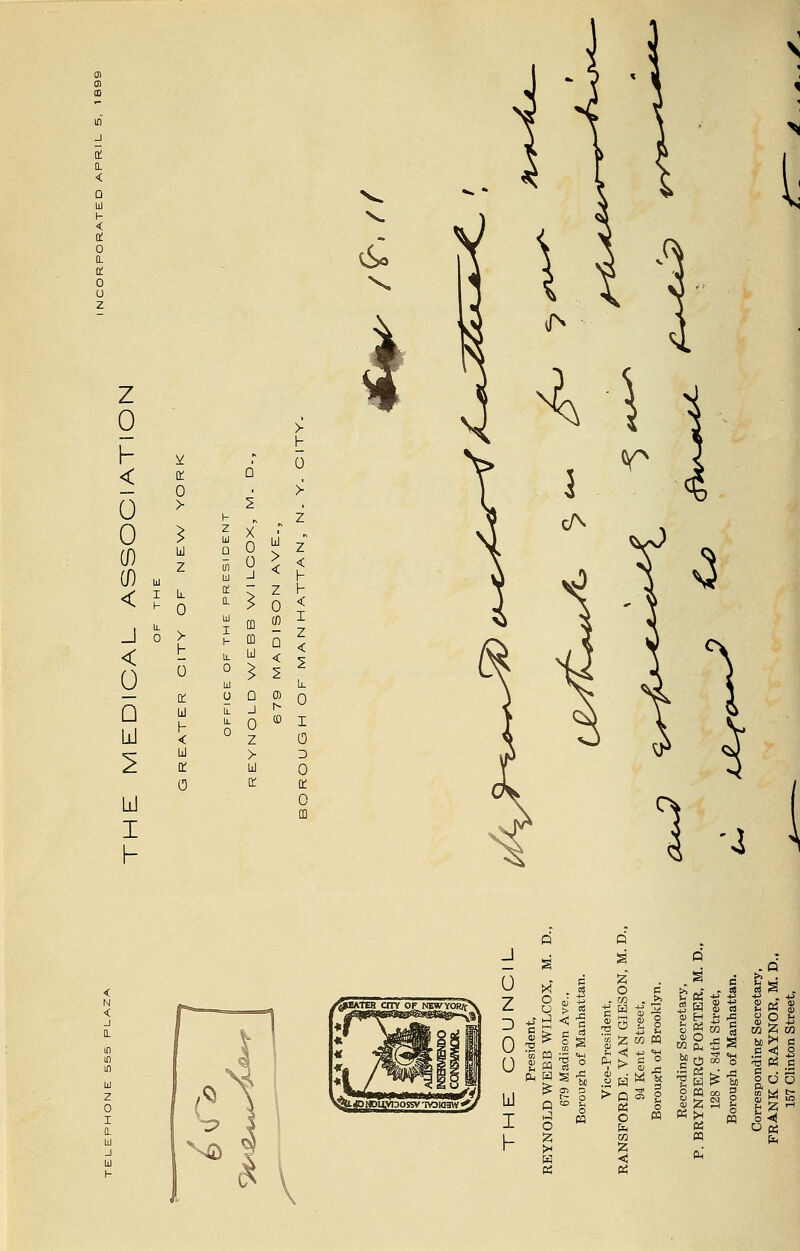 TELEPHONE 1515 PLAZA
INCORPORATED APRIL 5, 1899
THE MEDICAL ASSOCIATION
OF THE
GREATER CITY OF NEW YORK
OFFICE OF THE PRESIDENT
REYNOLD WEBB WILCOX, M. D.,
679 MADISON AVE.,
BOROUGH OF MANHATTAN, N. Y. CITY.
650
member
18, 11
GREATER CITY OF NEW YORK
MEDICAL ASSOCIATION
ALIIS
INSERVIENDO
CONSUMOR
THE COUNCIL
President,
REYNOLD WEBB WILCOX, M. D.,
679 Madison Ave.,
Borough of Manhattan.
Vice-President,
RANSFORD E. VAN GIESON, M. D.,
94 Kent Street,
Borough of Brooklyn.
Recording Secretary,
P. BRYNBERG PORTER, M. D.,
128 W. 84th Street,
Borough of Manhattan.
Corresponding Secretary,
FRANK C. RAYNOR, M. D.,
157 Clinton Street,
My dear Doctor Shattuck!
I thank you for your note
and especially your observation
in regard to small